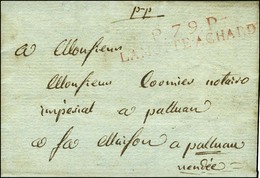 p.p
P. 79. P.
LA MOTTE ACHARD
a Monsieur
Monsieur Cormier notaire
imperial a palluau
a sa Maison a palluau
vendée